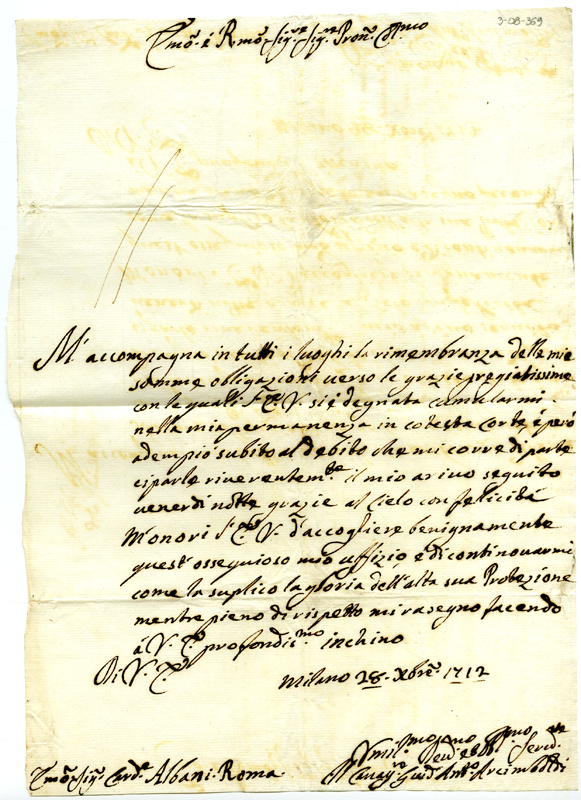 3-08-369
Emō. e Rmō. Sig.re Sig.re Pron̄. Colmo
M'accompagna in tutti i luoghi la rimembranza delle mie
somme obligazioni verso le grazie pregiatissime
con le quali l'E.V. si è degnata cumularmi
nella mia permanenza in cotesta Corte, è però
adempio subito al debito che mi corre di parte
ciparle riverentem.te il mio arivo seguito
venerdi notte grazie al Cielo con felicità
M'onori l'E.V. d'accogliere benignamente
quest'ossequioso mio uffizio, e di continovarmi
come la suplico la gloria dell'alta sua Protezione
mentre pieno di rispetto mi rasegno facendo
à V.E. profondis.mo inchino
Di V.E.
Milano 28. Xbre. 1712
Umil.mo Dev.mo Obbl.mo Serv.re
Emō. Sig. Card. Albani. Roma.
Giuds. Anto. Arcimboldi